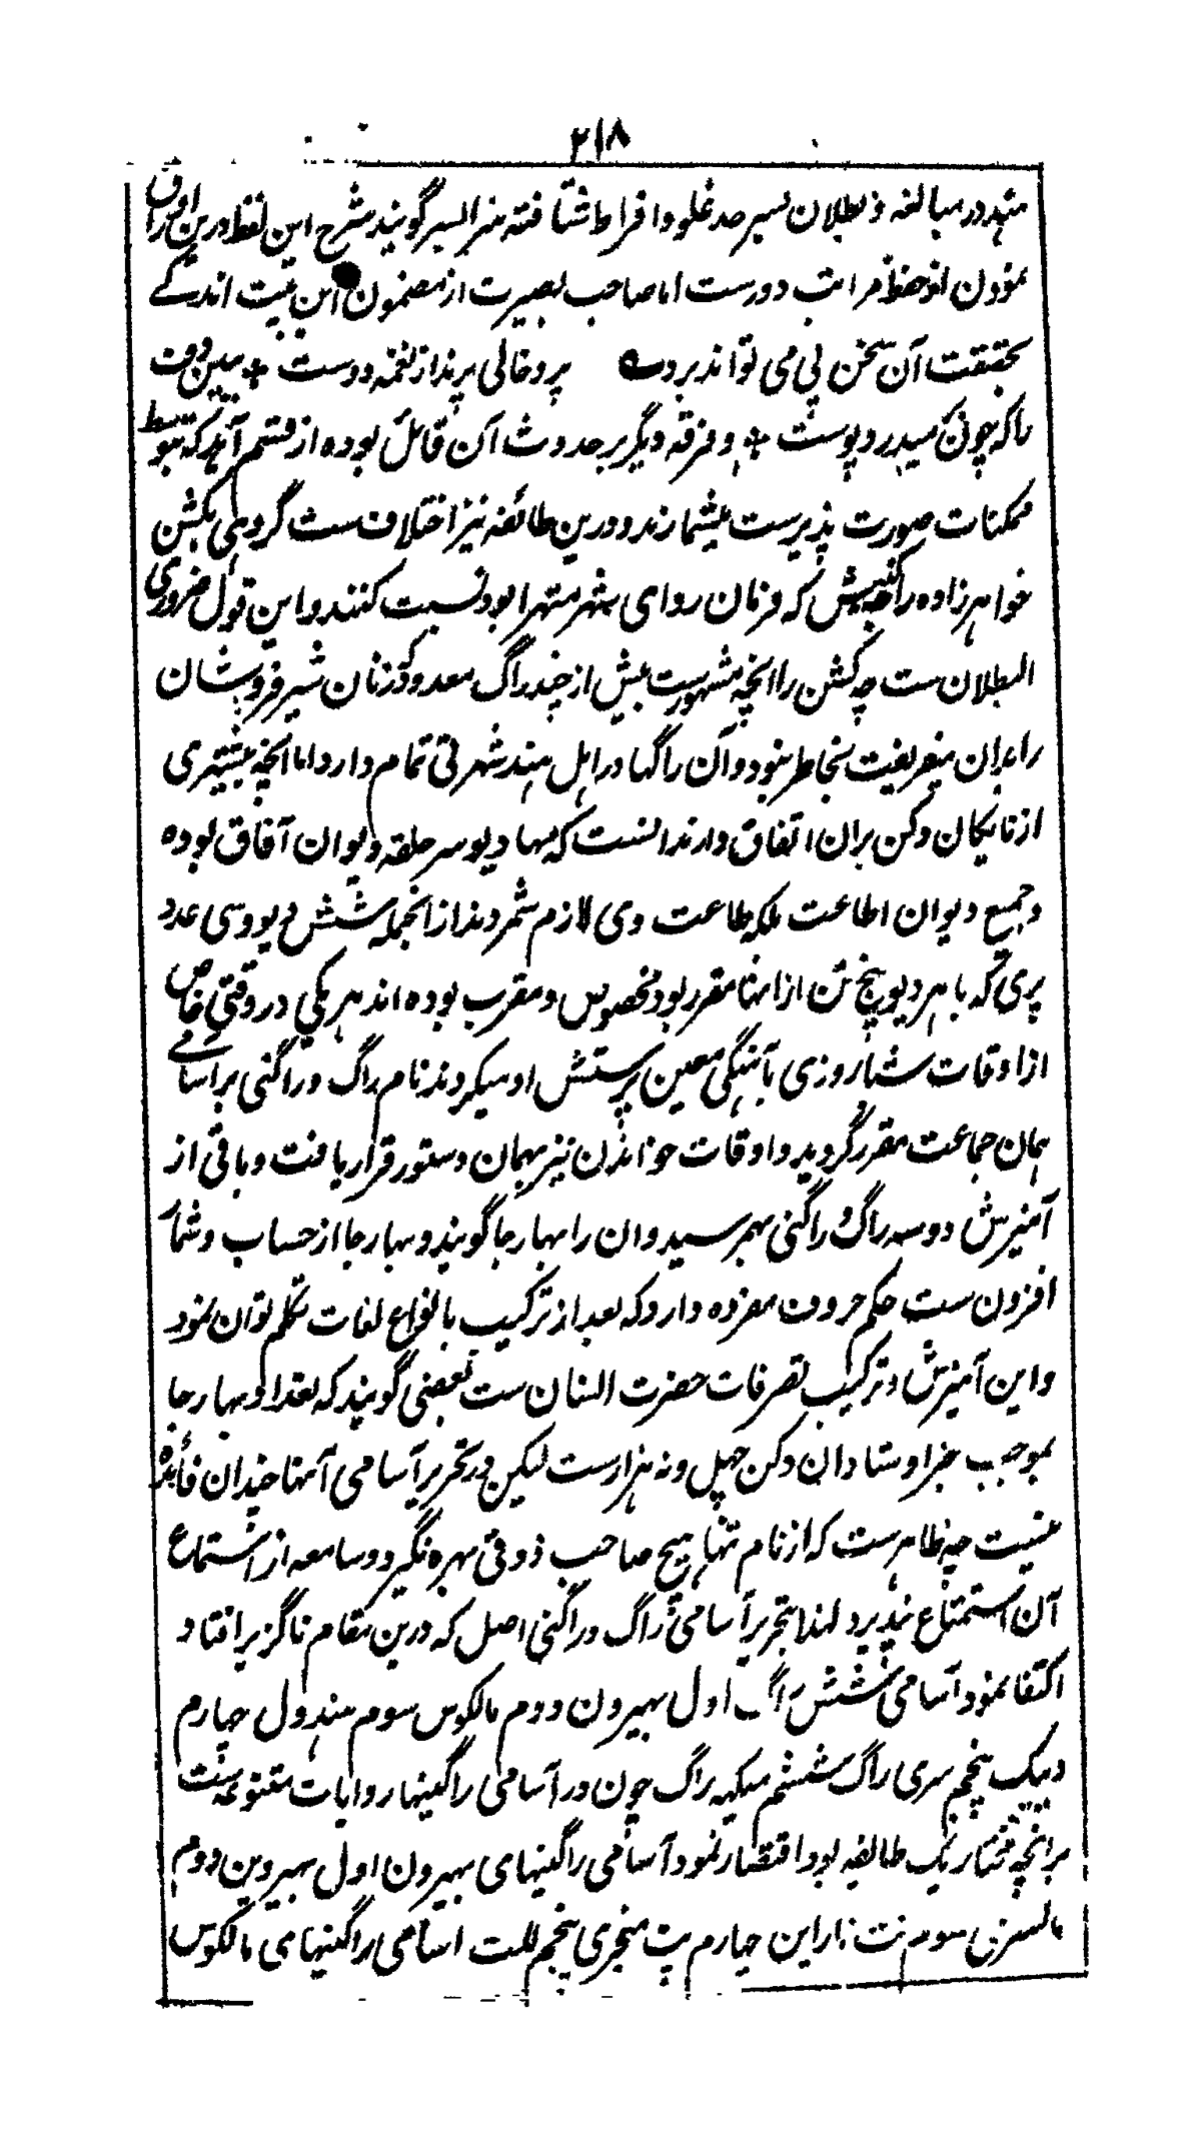 ۲۱۸
هند در مبالغه و بطلان بسیر حد غلو و افراط شتافته هزار السیر گویند شرح این لفظ درین اوراق
نمودن از حفظ مراتب دورست اما صاحب بصیرت از مضمون این بیت اندکے
بحقیقت آن سخن پی می تواند برد ے پر و خالی پرند از نغمه دوست ✣ ببین دف
را که چون میدرد پوست ✣ و فرقه دیگر بر حدوث آن قائل بوده از قسم آهر که بتوسط
ممکنات صورت پذیرست میشمارند و درین طائفه نیز اختلاف ست گروهی بکشن
خواهرزاده راجه کنس که فرمان روای شهر متهرا بود نسبت کنند و این قول ضروری
البطلان ست چه کشن را انچه مشهورست بیش از چند راگ معدود کز زنان شیر فروشان
را بدان میفریفت بخاطر نبود و آن راگها در اهل هند شهرتی تمام دارد اما انچه بیشتری
از نایکان دکن بران اتفاق دارند انست که مهادیو سر حلقه دیوان آفاق بوده
و جمیع دیوان اطاعت بلکه طاعت وی لازم شمردند از انجمله شش دیو و سی عدد
پری که با هر دیو پنج تن از انها مقرر بود مخصوص و مقرب بوده اند هر یکی در وقتی خاص
از اوقات شباروزی بآهنگی معین پرستش او میکردند نام راگ و راگنی بر اسامے
همان جماعت مقرر گردید و اوقات خواندن نیز بهمان دستور قرار یافت و باقی از
آمیزش دو سه راگ و راگنی بهم رسید و ان را بهارجا گویند و بهارجا از حساب و شمار
افزون ست حکم حروف مفرده دارد که بعد از ترکیب بانواع لغات تکلم توان نمود
و این آمیزش و ترکیب تصرفات حضرت انسان ست بعضی گویند که تعداد بهارجا
بموجب جزا وستادان دکن چهل و نه هزارست لیکن در تحریر آسامی آنها چندان فائده
نیست چه ظاهرست که از نام تنها هیچ صاحب ذوقی بهره نگیرد و سامعه از استماع
آن استمتاع نپذیرد لهذا بتحریر آسامی راگ و راگنی اصل که درین مقام ناگزیر افتاد
اکتفا نمود آسامی شش راگ اول بهیرون دوم مالکوس سوم هندول چهارم
دیپک پنجم سری راگ ششم میگهه راگ چون در آسامی راگنیها روایات متنوعه ست
بر انچه مختار یک طائفه بود اقتصار نمود آسامی راگنیهای بهیرون اول بهیروین دوم
مالسری سوم نت ناراین چهارم پت منجری پنجم للت اسامی راگنیهای مالکوس